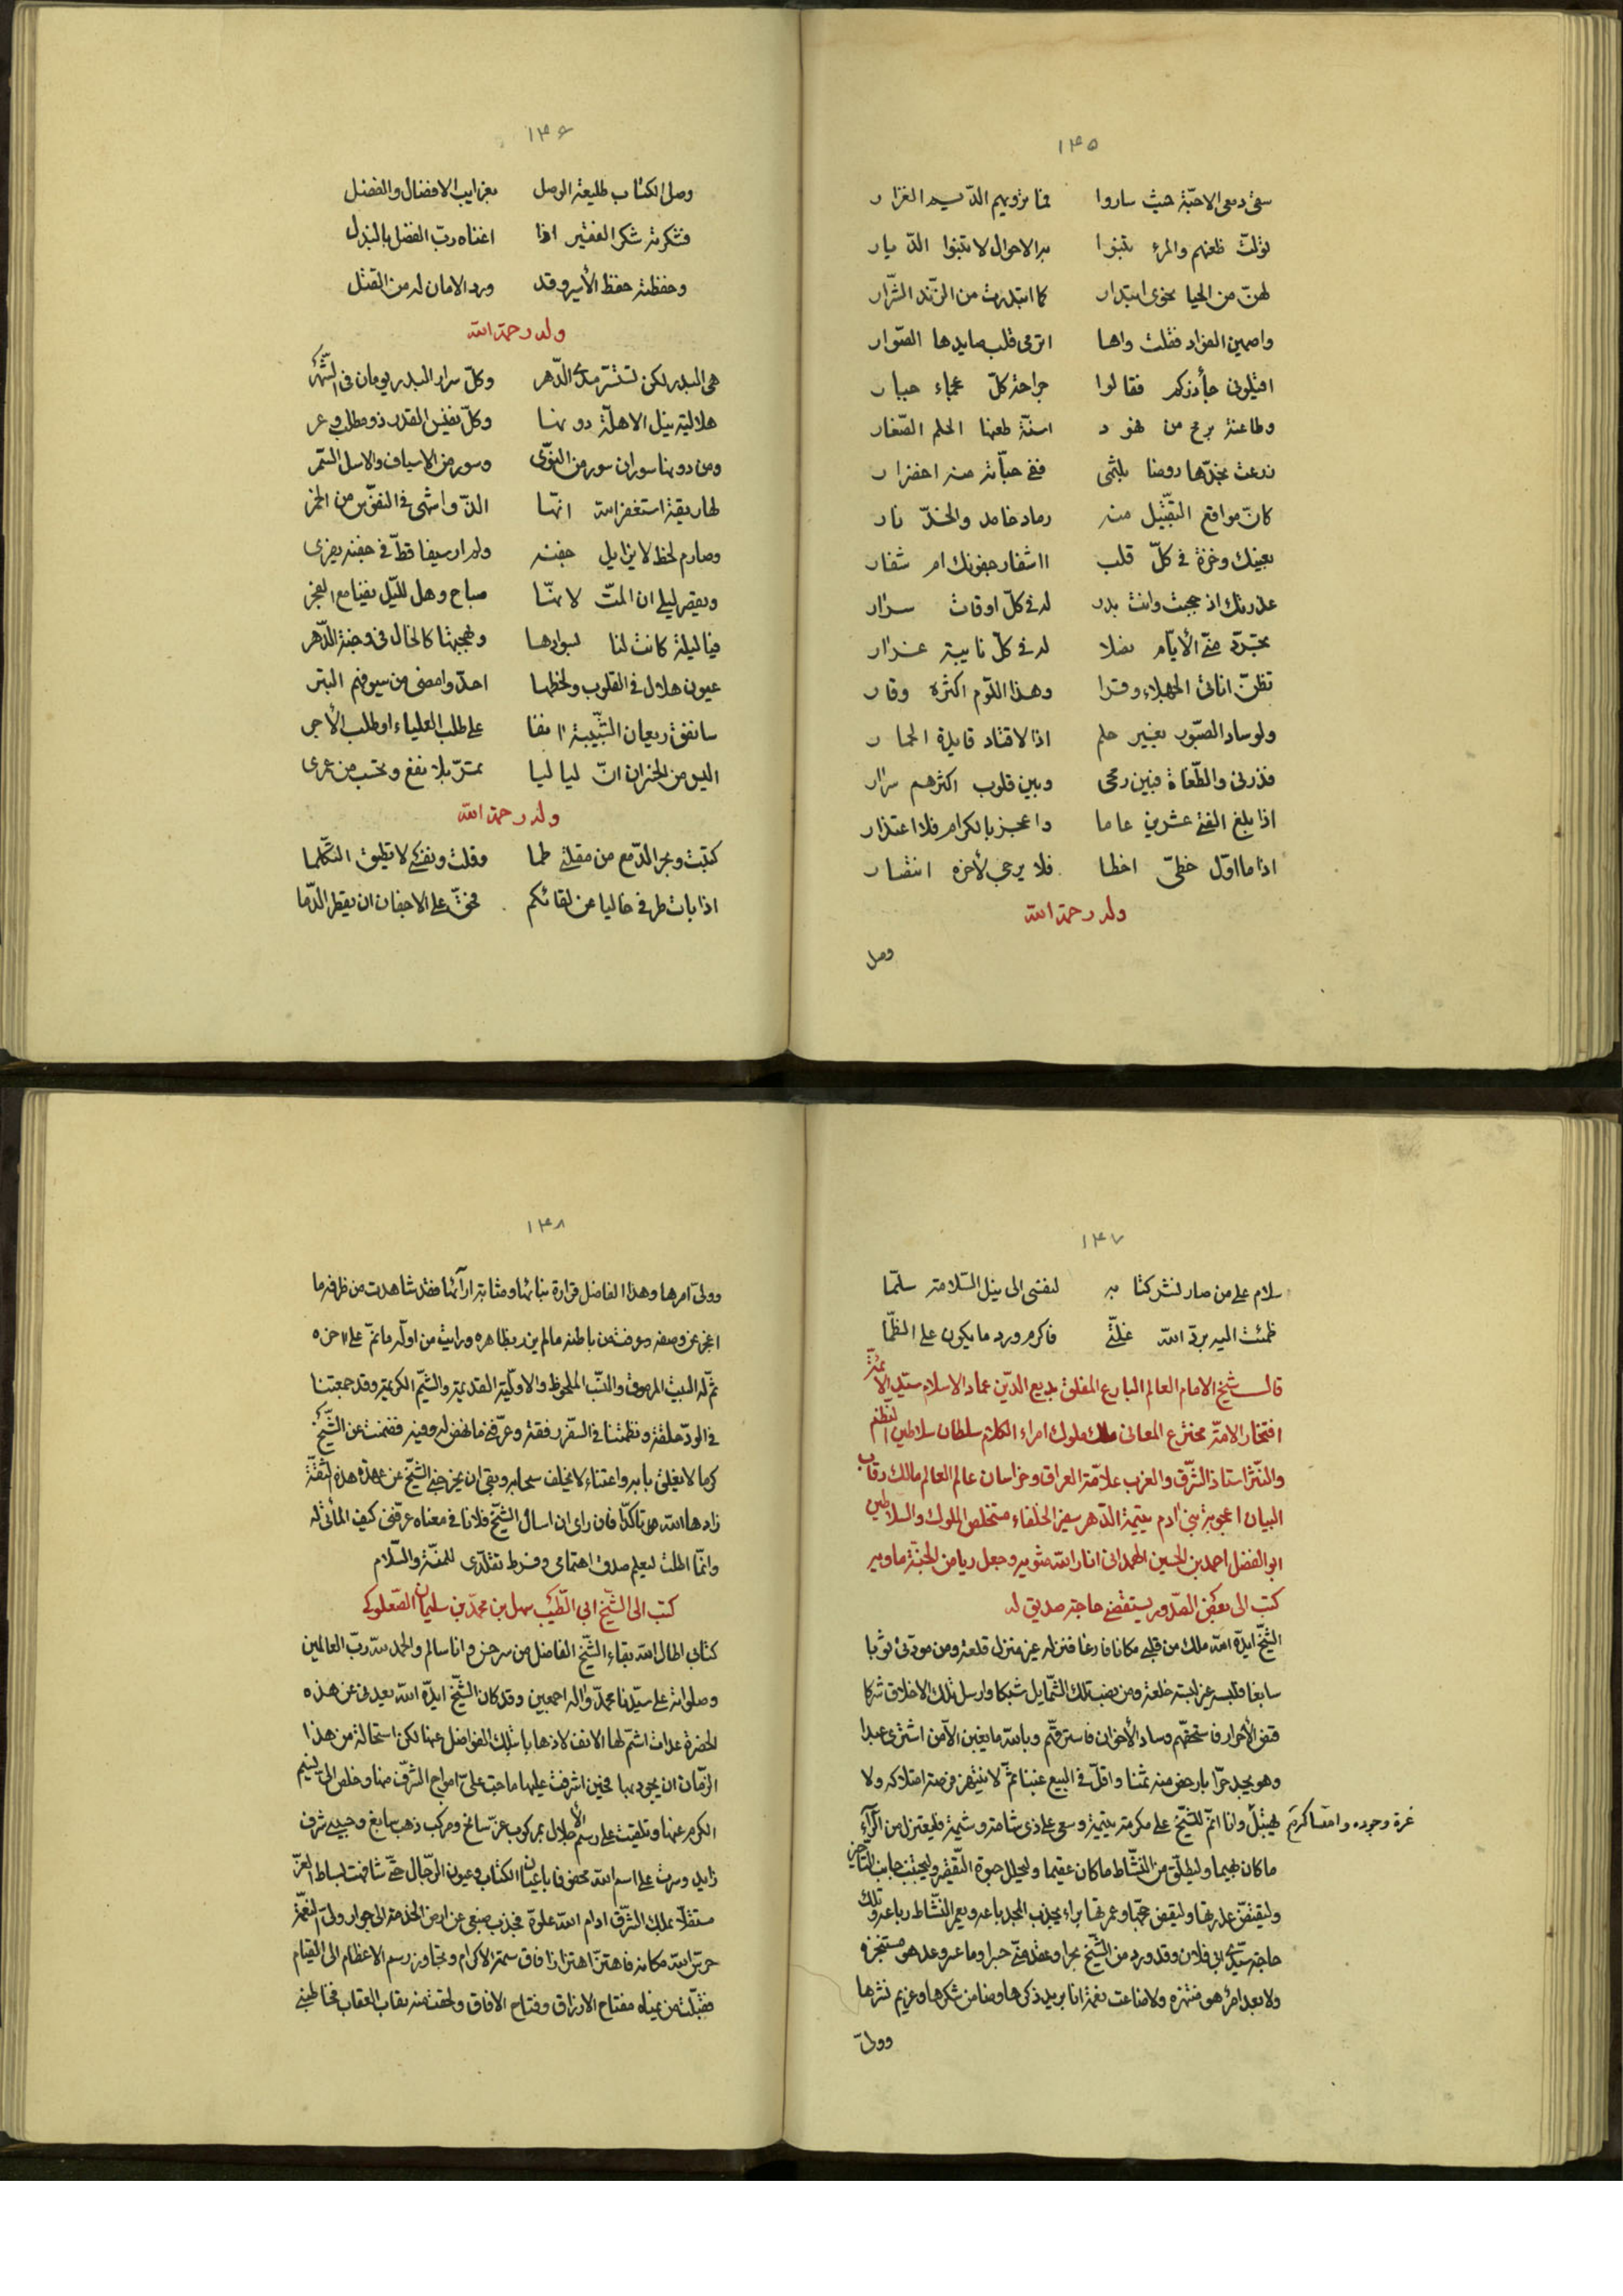 ۱۴۵
سقى دمعى الاحبّة حيث ساروا فما ترويهم الدّيم الغزار
تولّت ظعنهم والمرء تنبوا به الاحوال لا تنبوا الدّيار
لهنّ من الحيا نحوى ابتدار كما ابتدرت من الزّند الشّرار
واصمين الفؤاد فقلت واها اترمى قلب صايدها الصّوار
اقتلونى جأذركم فقالوا جراحة كلّ عجماء جبار
وطاعنة برمح من نهود اسنّة طعنها الحلم الصّغار
زرعت بخدّها روضا بلثمى ففى حبّاته منه اخضرار
كانّ مواقع التقبيل منه رماد خامد والخدّ نار
بعينك وخزة فى كلّ قلب ااشفار جفونك ام شفار
عذرتك اذ حجبت وانت بدر له فى كلّ اوقات سرار
تجرّد منّى الأيّام نصلا له فى كلّ نايبة غرار
تظنّ اناتى الجهلاء وقرا وهذا اللّوم اكثره وقار
ولو ساد الصّبور بغير حلم اذا لاقتاد قايده الحمار
فذرنى والطّغاة فبين رمحى وبين قلوب اكثرهم سرار
اذا بلغ الفتى عشرين عاما واعجز بالكرام فلا اعتذار
اذا ما اوّل خطىّ اخطا فلا يرجى لأخره انتصار
وله رحمة الله
وصل
۱۴۶
وصل الكتاب طليعة الوصل بغرايب الافضال والفضل
فشكرته شكر الفقير اذا اغناه ربّ الفضل بالبذل
وحفظته حفظ الأسير وقد ورد الامان له من القتل
وله رحمة الله
هى البدر لكن تستتر مدى الدّهر وكلّ سرار البدر يومان فى الشّهر
هلالية نيل الاهلّة دونها وكلّ نفيس القدر ذو مطلب وعر
ومن دونها سوران سور من النوّى وسور من الاسياف والاسل السّمر
لها ريقة استغفر الله انّها الذّ واشهى فى النفوس من الخمر
وصارم لحظ لا يزايل جفنه ولم ار سيفا قطّ فى جفنه يفرى
ويقصر ليلى ان المّت لانّها صباح وهل للّيل بقيا مع الفجر
فيا ليلة كانت لنا بسوادها وبهجتها كالخال فى وجنة الدّهر
عيون هلال فى القلوب ولحظها احدّ وامضى من سيوفهم البتر
سانفق ريعان الشّبيبة انفا على طلب العلياء او طلب الأجر
اليس من الخسران انّ لياليا تمرّ بلا نفع وتحسب من عمرى
وله رحمة الله
كتبت وبحر الدّمع من مقلتى طما وقلت ونفسى لا تطيق التكلّما
اذا بات طرفى خاليا من لقائكم فحقّ على الاجفان ان يقطر الدّما
۱۴۷
سلام على من صار نشر كتابه لنفسى الى نيل السّلامة سلّما
ظمئت اليه برّد الله غلّتى فاكرم ورد ما يكون على الظّما
قال شيخ الامام العالم البارع المفلق بديع الدّين عماد الاسلام سيّد الائمّة
افتخار الامّة مخترع المعانى ملك ملوك امراء الكلام سلطان سلاطين النّظم
والنّثر استاذ الشّرق والغرب علاّمة العراق وخراسان عالم العالم مالك رقاب
البيان اعجوبة بنى ادم يتيمة الدّهر سفير الخلفاء مستخلص الملوك والسلاطين
ابو الفضل احمد بن الحسين الهمدانى انار الله مثويه وجعل رياض الجنّة ماويه
كتب الى بعض الصّدور يستقضى حاجة صديق له
الشّيخ ايدّه الله ملك من قلبى مكانا فارغا فنزله غير منزل قلعة ومن مودّتى ثوبا
سابغا فلبسه غير لبسة خلعة ومن نصب تلك الشّمايل شبكا وارسل تلك الاخلاق شركا
قنص الأحرار فاستحقّهم وصاد الأخوان فاسترقّهم وبالله ما يغبن الآمن اشترى عبدا
وهو يجد حرّا بارخص منه ثمنا واقلّ فى البيع غبنا ثمّ لا ينتهز فرصة امتلاكه ولا
يهتبل غرّة وجوده واقساكرم وانا اتمّ للشّيخ على مكرمة يتيمة وسعى على ذى شامة وشيمة فليعتزل من الآراء
ما كان بهيما وليطلّق من النّشاط ما كان عقيما وليحلل حبوة التّقصير وليجتنب جانب التّاخير
وليفتضّ عذرتها وليقض حجّها وعمرتها براء يجذب المجد باعه ويعمر النّشاط رباعه وتلك
حاجة سيّدى ابى فلان وقد ورد من الشّيخ بحرا وعقد منّى جسرا وما عسر وعد هو مستنجزه
ولا بعد امر هو منتهزه ولا ضاعت نعمة انا بريد ذكرها وضامن شكرها وغريم نشرها
وولىّ
۱۴۸
وولىّ امرها وهذا الفاضل قرارة نباتها ومثابة ارآئها فقد شاهدت من ظرفه ما
اعجز عن وصفه وعرفت من باطنه ما لم يزد بظاهره ورايت من اوّله ما نمّ على اخره
ثمّ له البيت المرموق والنّسب الملحوظ والاوليّة القديمة والشّيم الكريمة وقد جمعتنا
فى الودّ حلقة ونظمتنا فى السّفر رفقة وعرّفنى ما نهض له وفيه فضمنت عن الشّيخ
كرما لا يغلق بابه واعتناء لا يخلف سحابه وبقى ان يخرجنى الشّيخ عن عهدة هذه الثّقة
زادها الله تاكّدا فان راى ان اسال الشّيخ فلانا فى معناه عرّفنى كيف المأتى له
وانّما اطلت ليعلم صدق اهتمامى وفرط تقلّدى للمنّة والسّلام
كتب الى الشّيخ ابى الطّيب سهل بن محمّد بن سليمان الصّعلوكى
كتابى اطال الله بقاء الشّيخ الفاضل من سرخس وانا سالم والحمد لله ربّ العالمين
وصلواته على سيّدنا محمّد واله اجمعين وقد كان الشّيخ ايدّه الله يعدنى عن هذه
الحضرة عدات اشمّ لها الانف لا ذهابا بتلك الفواضل عنها لكن استحالة من هذا
الزّمان ان يجود بها فحين اشرفت عليها ماجت علىّ امواج الشّرف منها وخلص الىّ نسيم
الكرم عنها وتلقّيت على رسم الأجلال بمركوب عزّ سانح ومركب ذهب سابغ وجنيبى شرف
زايد وسرت على اسم الله محفوفا باعيان الكتّاب وعيون الرّجال حتّى شافهت بساط العزّ
مستقلاّ بملك الشّرق ادام الله علوّه فجذب بضبعى عن ارض الخدمة الى جوار ولىّ النّعمة
حرس الله مكانه فاهتزّ اهتزازا فاق سمة الاكرام وتجاوز رسم الاعظام الى القيام
فقبّلت من يمينه مفتاح الارزاق وفتاح الافاق ولحقت منه بقاب العقاب فخاطبنى